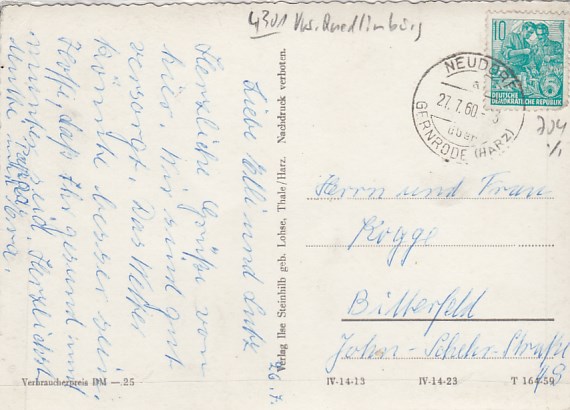 4301 Krs. Quedlinburg
Liebe Elli und Lutz
26.7.
Herzliche Grüße von
hier. Wir sind gut
versorgt. Das Wetter
könnte besser sein.
Hoffe, daß Ihr gesund und
munter seid. Herzlichst
Vera.
Verlag Ilse Steinhilb geb. Lohse, Thale/Harz. Nachdruck verboten.
10
5
DEUTSCHE
DEMOKRATISCHE REPUBLIK
NEUDORF
27.7.60
über
GERNRODE (HARZ)
Herrn und Frau
Kogge
Bitterfeld
John-Schehr-Straße
Verbraucherpreis DM —.25
IV-14-13
IV-14-23
T 164-59